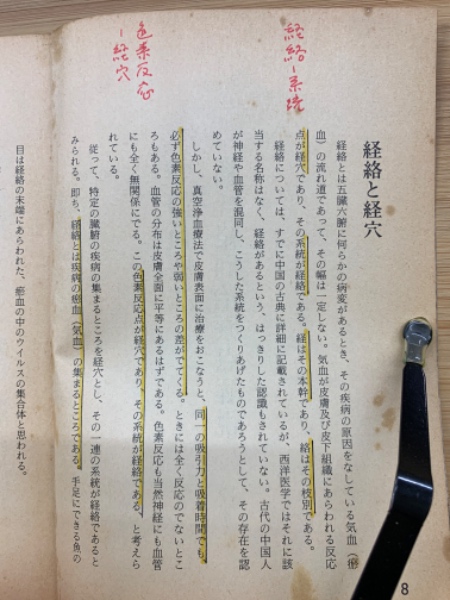 経絡ー系統
色素反応
ー経穴
経絡と経穴
経絡とは五臓六腑に何らかの病変があるとき、その疾病の原因をなしている気血（瘀
血）の流れ道であって、その幅は一定しない。気血が皮膚及び皮下組織にあらわれる反応
点が経穴であり、その系統が経絡である。経はその本幹であり、絡はその枝別である。
経絡については、すでに中国の古典に詳細に記載されているが、西洋医学ではそれに該
当する名称はなく、経絡があるという、はっきりした認識もされていない。古代の中国人
が神経や血管を混同し、こうした系統をつくりあげたものであろうとして、その存在を認
めていない。
しかし、真空浄血療法で皮膚表面に治療をおこなうと、同一の吸引力と吸着時間でも、
必ず色素反応の強いところや弱いところの差がでてくる。ときには全く反応のでないとこ
ろもある。血管の分布は皮膚全面に平等にあるはずである。色素反応も当然神経にも血管
にも全く無関係にでる。この色素反応点が経穴であり、その系統が経絡である、と考えら
れている。
従って、特定の臓腑の疾病の集まるところを経穴とし、その一連の系統が経絡であると
みられる。即ち、経絡とは疾病の瘀血（気血）の集まるところである。手足にできる魚の
目は経絡の末端にあらわれた、瘀血の中のウイルスの集合体と思われる。
8